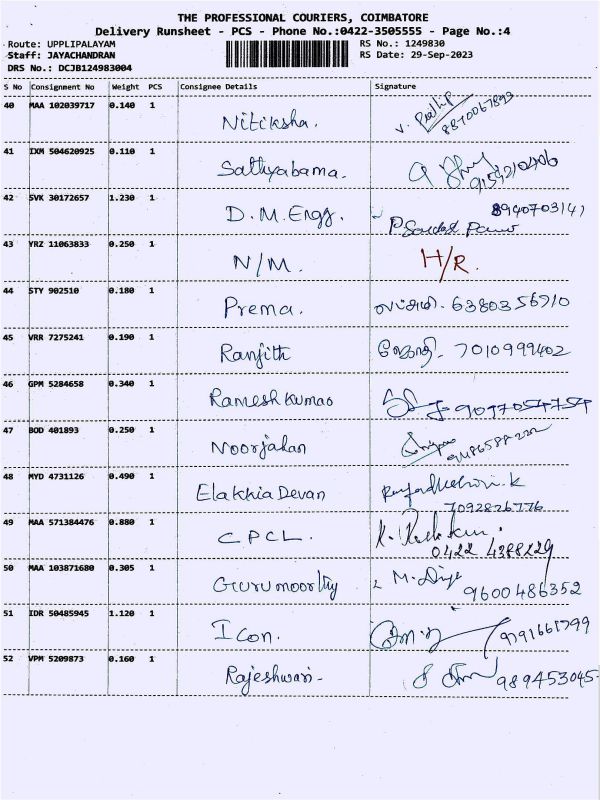 THE PROFESSIONAL COURIERS, COIMBATORE
Delivery Runsheet - PCS - Phone No.:0422-3505555 - Page No.:4
Route: UPPLIPALAYAM
RS No.: 1249830
Staff: JAYACHANDRAN
RS Date: 29-Sep-2023
DRS No.: DCJB124983004
S No Consignment No Weight PCS Consignee Details Signature
40 MAA 102039717 0.140 1 Nitiksha.
8870067893
41 IXM 504620925 0.110 1 Sathyabama.
9159210406
42 SVK 30172657 1.230 1 D.M.Engg. 8940703141
43 YRZ 11063833 0.250 1 N/M. H/R.
44 STY 902510 0.180 1 Prema. 6380356910
45 VRR 7275241 0.190 1 Ranjith 7010999402
46 GPM 5284658 0.340 1 Rameshkumar 9097054754
47 BOD 401893 0.250 1 Noorjahan
48 MYD 4731126 0.490 1 Elakkia Devan
7092826776
49 MAA 571384476 0.880 1 C.P.C.L.
0422 4388229
50 MAA 103871680 0.305 1 Gurumoorthy
9600486352
51 IDR 50485945 1.120 1 Icon. 9791661799
52 VPM 5209873 0.160 1 Rajeshwari- 989453045